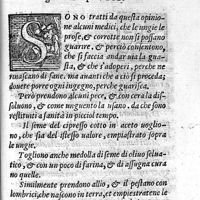 SONO tratti da questa opinio-
ne alcuni medici, che le ungie le
prose, & corrotte non si possano
guarire, & perciò consentono,
che si faccia andar via la gua-
sta, & che s'adoperi, perche ne
rinascano di sane. ma auanti che a ciò si proceda;
douete porre ogni ingegno, perche guarisca.
Però prendono alcuni pece, & con cera la dis-
soluono, & come unguento la usano. da che sono
restituiti a sanità in picciol tempo.
Il seme del cipresso cotto in aceto ouogni-
uno, sia del istesso ualore, empiastrato sopra
le ungie.
Togliono anche medolla di seme di oliuo seluа-
tico, & con un poco di farina, & di assugna cura
no quelle.
Similmente prendono allio, & il pestano con
lombrici, che nascono in terra, et empiastratene le